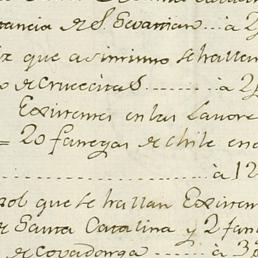 tancia de S. Sevastian .. à 2
ix que asimismo se hallan
o de crucecitas ........ à 2
Existentes en las Lavore
= 20 fanegas de chile en
........ à 12
rol que se hallan Existen
e Santa Catalina y 2 fan
de covadonga ........ à 3